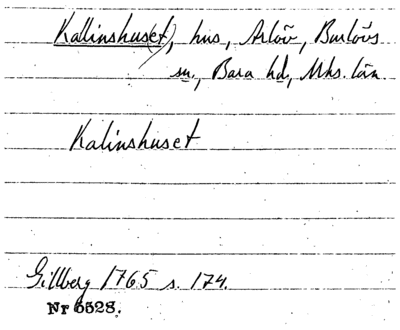 Kallinshus(et), hus, Arlöv, Burlövs
sn., Bara hd, Mhs. län.
Kalinshuset
Gillberg 1765 s. 174.
Nr 5528.